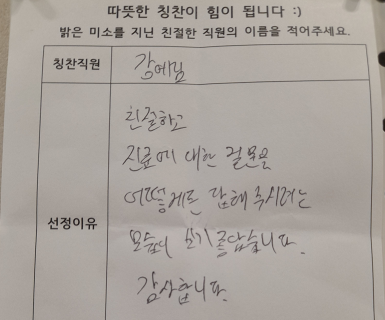 따뜻한 칭찬이 힘이 됩니다 :)
밝은 미소를 지닌 친절한 직원의 이름을 적어주세요.
칭찬직원
강예림
선정이유
친절하고
진료에 대한 질문을
어떻게든 답해 주시려는
모습이 보기 좋았습니다.
감사합니다.